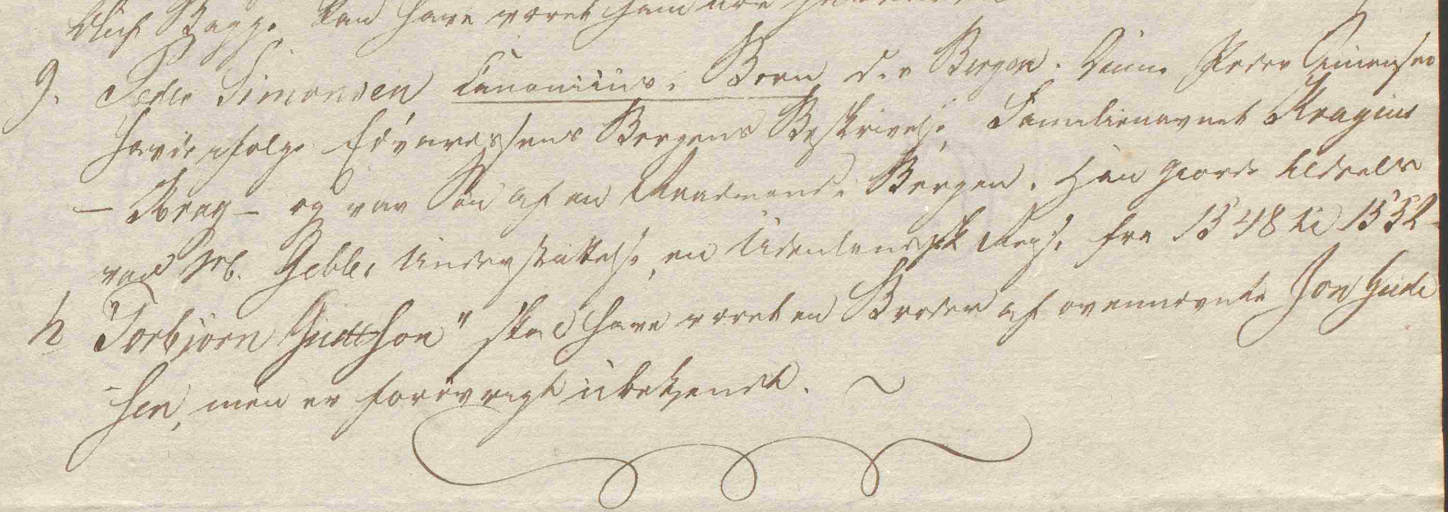 Bagge kan have været
g. Peder Simonsen Canonicus i Bern d.e. Bergen. Denne Peder Simonsen
havde ifølge Edvardssens Bergens Beskrivelse Familienavnet Kragius
– Krag – og var Søn af en Raadmand i Bergen. Han gjorde tildeels
ved M. Gebles Understøttelse en Udenlandsk Reise fra 1548 til 1552
h "Torbjørn Guttson" skal have været en Broder af ovennævnte Jon Gutte
-sen, men er forøvrigt ubekjendt. ~